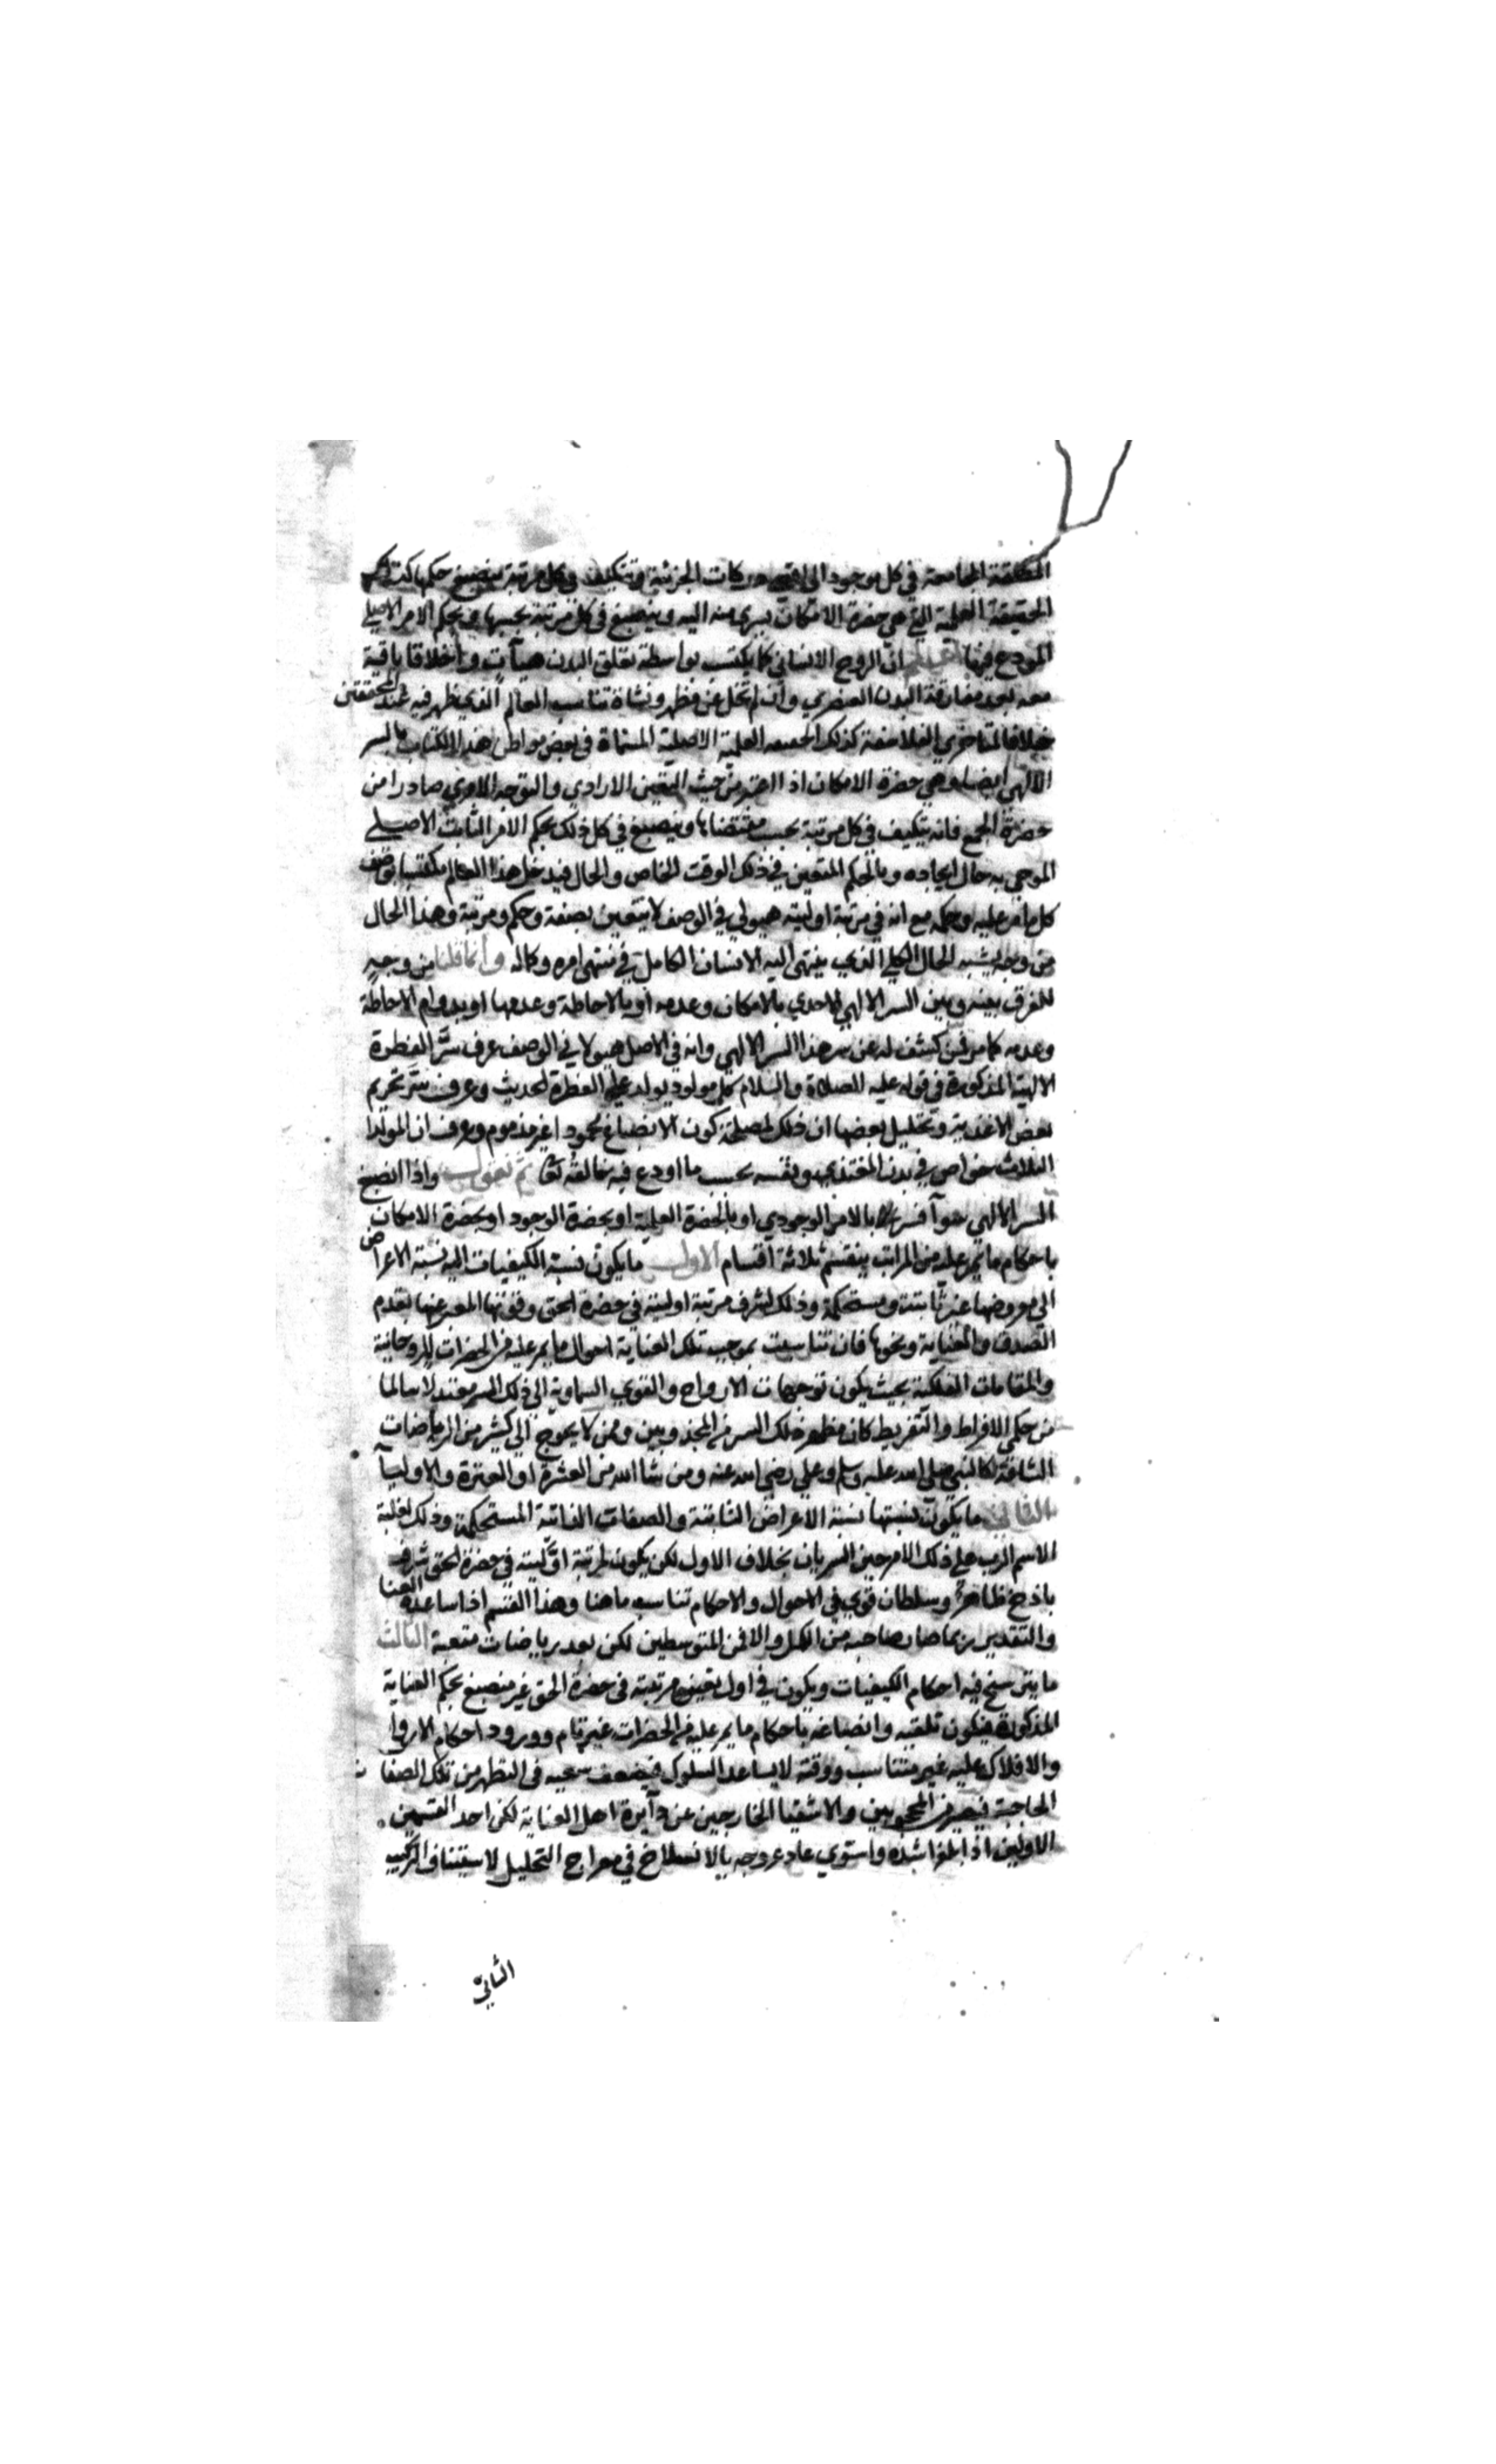 المطلقة الجامعة في كل موجود الى اقصى درجات الجزئية ويتكيف في كل مرتبة ينصبغ حكمها كذلك
الحقيقة العلمية التي هي حضرة الامكان يسري منه اليه وينصبغ في كل مرتبة بحسبها وبحكم الامر الاصلي
المودع فيها ان الروح الانساني كما يكتسب بواسطة تعلق البدن هيآت واخلاقا باقية
معه بعد مفارقة البدن العنصري وان لم تخل عن مظهر ونشاة تناسب العالم الذي ظهر فيه عند المحققين
خلافا لمتاخري الفلاسفة كذلك الحصه العلمية الاصلية المسماة في بعض مواطن هذا الكتاب بالسر
الالهي ايضا وهي حضرة الامكان اذا اعتبر من حيث التعين الارادي والتوجه الامري صادرا من
حضرة الجمع فانه يتكيف في كل مرتبة بحسب مقتضاها وينصبغ في كل ذلك بحكم الامر الثابت الاصلي
الموحي به حال ايجاده وبالحكم المتعين في ذلك الوقت الخاص والحال فيدخل هذا العالم مكتسبا وصف
كل ما مر عليه وحكمه مع انه في مرتبة اوليته هيولي في الوصف لا يتعين بصفة وحكم ومرتبة وهذا الحال
من وجه يشبه الحال الكلي الذي ينتهي اليه الانسان الكامل في منتهى امره وكماله وانما قلنا من وجه
للفرق بينه وبين السر الالهي الاحدي بالامكان وعدمه او بالاحاطة وعدمها او بدوام الاحاطة
وعدمه كما مر فمن كشف له عن سر هذا السر الالهي وانه في الاصل هيولاني الوصف عرف سر الفطرة
الالهية المذكورة في قوله عليه الصلاة والسلام كل مولود يولد على الفطرة الحديث وعرف سر تحريم
بعض الاغذية وتحليل بعضها ان ذلك لمصلحة كون الانصباغ محمودا غير مذموم وعرف ان المولدا
الثلاث خواص في بدن المغتذي ونفسه بحسب ما اودع فيه خالقه تعا ثم نقول واذا انصبغ
السر الالهي سوآ فسر بالامر الوجودي او بالحضرة العلمية او بحضرة الوجود او بحضرة الامكان
باحكام ما يمر عليه من المراتب ينقسم ثلاثة اقسام الاول ما يكون نسبة الكيفيات اليه نسبة الاعراض
الى معروضها غير ثابتة ومستحكمة وذلك لشرف مرتبة اوليته في حضرة الحق وقوتها المعبر عنها بقدم
الصدق والعناية ونحوها فان تناسبت بموجب تلك العناية احوال ما يمر عليه من الحضرات الروحانية
والمقامات الفلكية بحيث يكون توجهات الارواح والقوي السماوية الى ذلك السر معتدلا سالما
من حكمي الافراط والتفريط كان مظهر ذلك السر من المجذوبين وممن لا يحوج الى كثير من الرياضات
الشاقة كالنبي صلى الله عليه وسلم وعلي رضي الله عنه ومن شا الله من العشرة او العترة والاوليآ
الثاني ما يكون نسبتها نسبة الاعراض الثابتة والصفات الذاتية المستحكمة وذلك لغلبة
الاسم الرب على ذلك الامر حين السريان بخلاف الاول لكن يكون لمرتبة اوليته في حضرة الحق شرف
باذخ ظاهر وسلطان قوي في الاحوال والاحكام تناسب ما هنا وهذا القسم اذا ساعده العنا
والتقدير ربما صار صاحبه من الكمل والا فمن المتوسطين لكن بعد رياضات متعبة الثالث
ما يترسخ فيه احكام الكيفيات ويكون في اول تعين مرتبته في حضرة الحق غير منصبغ بحكم العناية
المذكورة فيكون تلقيه وانصباغه باحكام ما يمر عليه من الحضرات غير تام وورود احكام الاروا
والافلاك عليه غير متناسب ووقته لا يساعد السلوك فيضعف سعيه في التطهر من تلك الصفات
الحاجبة فيصير من المحجوبين والاشقيا الخارجين عن دآيرة اهل العناية لكن احد القسمين
الاولين اذا بلغ اشده واستوي عاد عروجه بالانسلاخ في معراج التحليل لاستيناف التركيب
الثاني